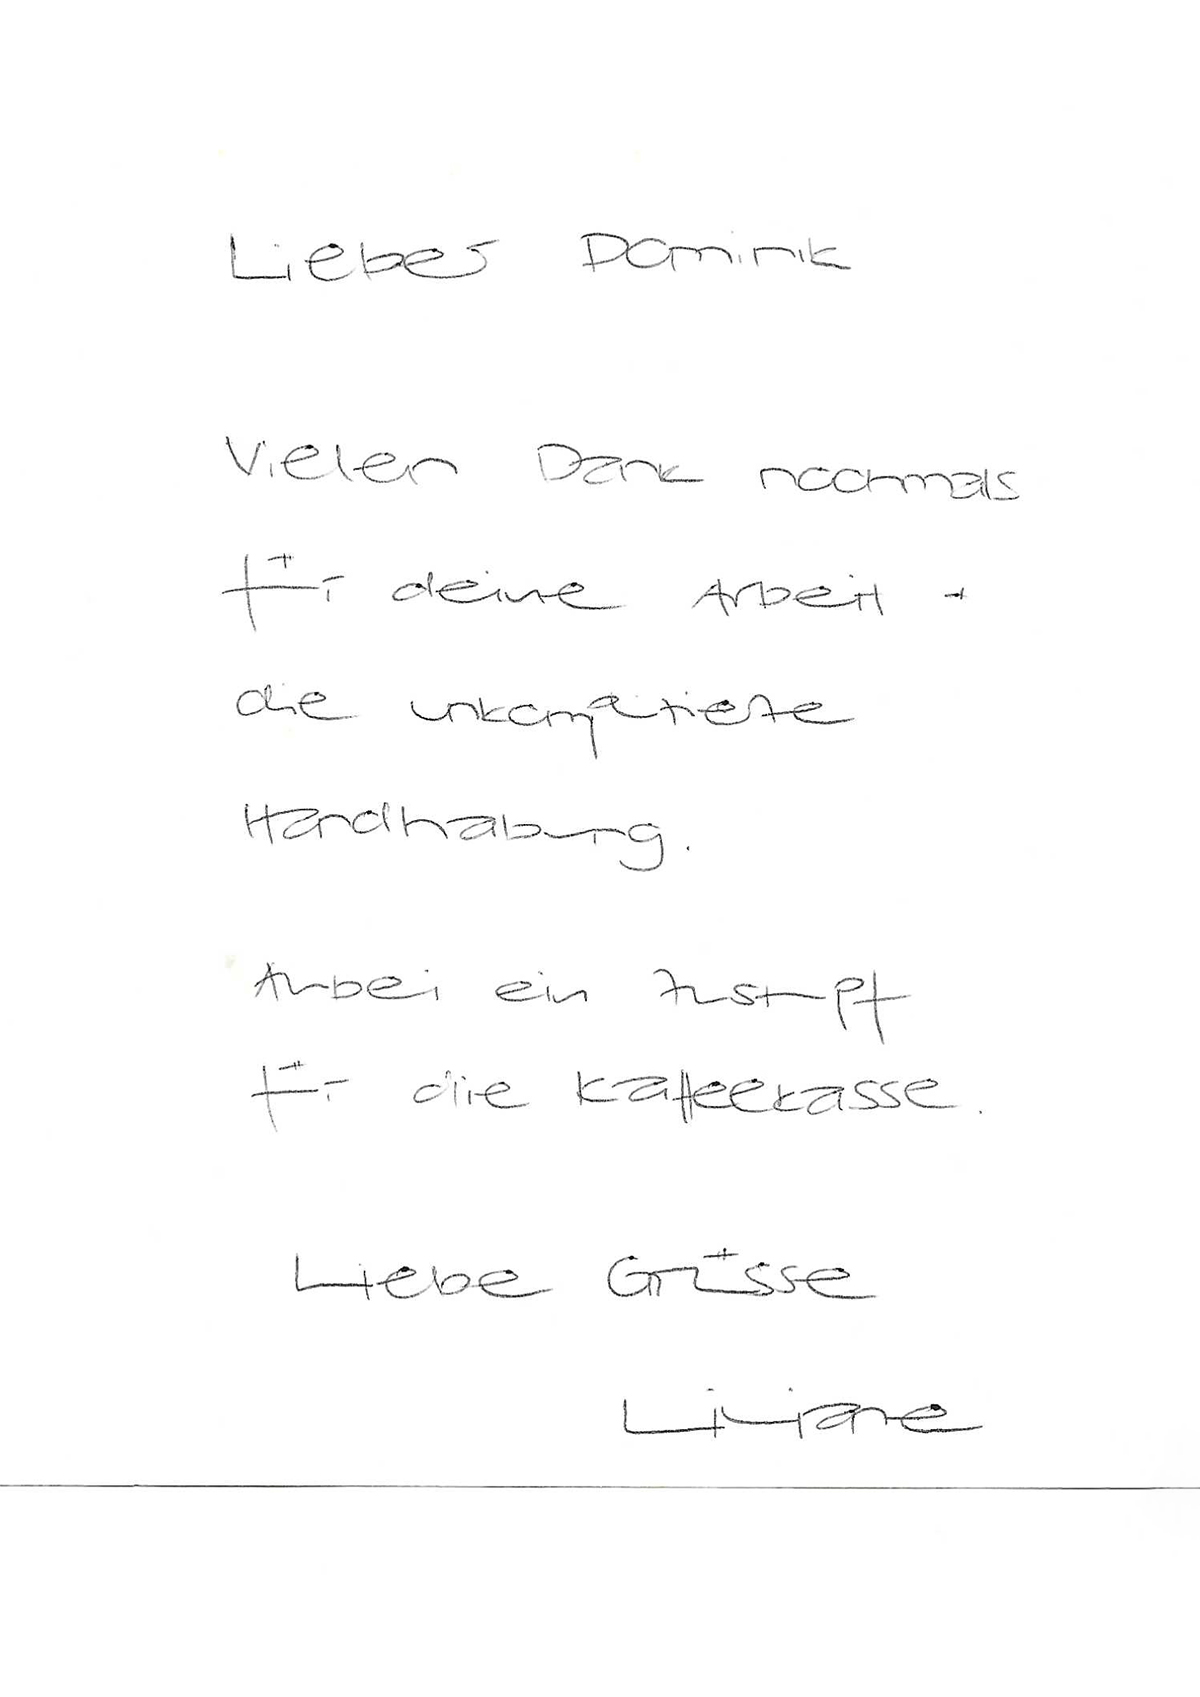 Lieber Dominik
Vielen Dank nochmals
für deine Arbeit +
die unkomplizierte
Handhabung.
Anbei ein Zustupf
für die Kaffeekasse.
Liebe Grüsse
Liviane